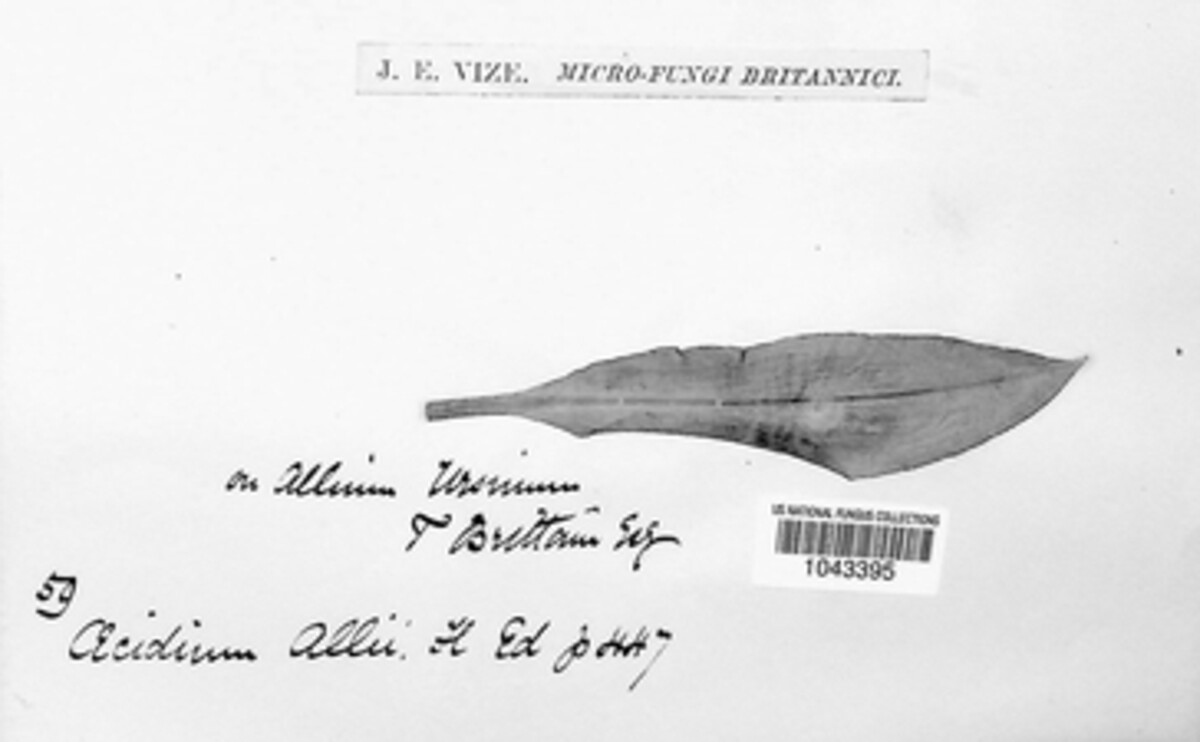 J. E. VIZE. MICRO-FUNGI BRITANNICI.
on Allium Ursinum
T Brittain Esq
US NATIONAL FUNGUS COLLECTIONS
1043395
59
Æcidium Allii. Fl Ed p 447